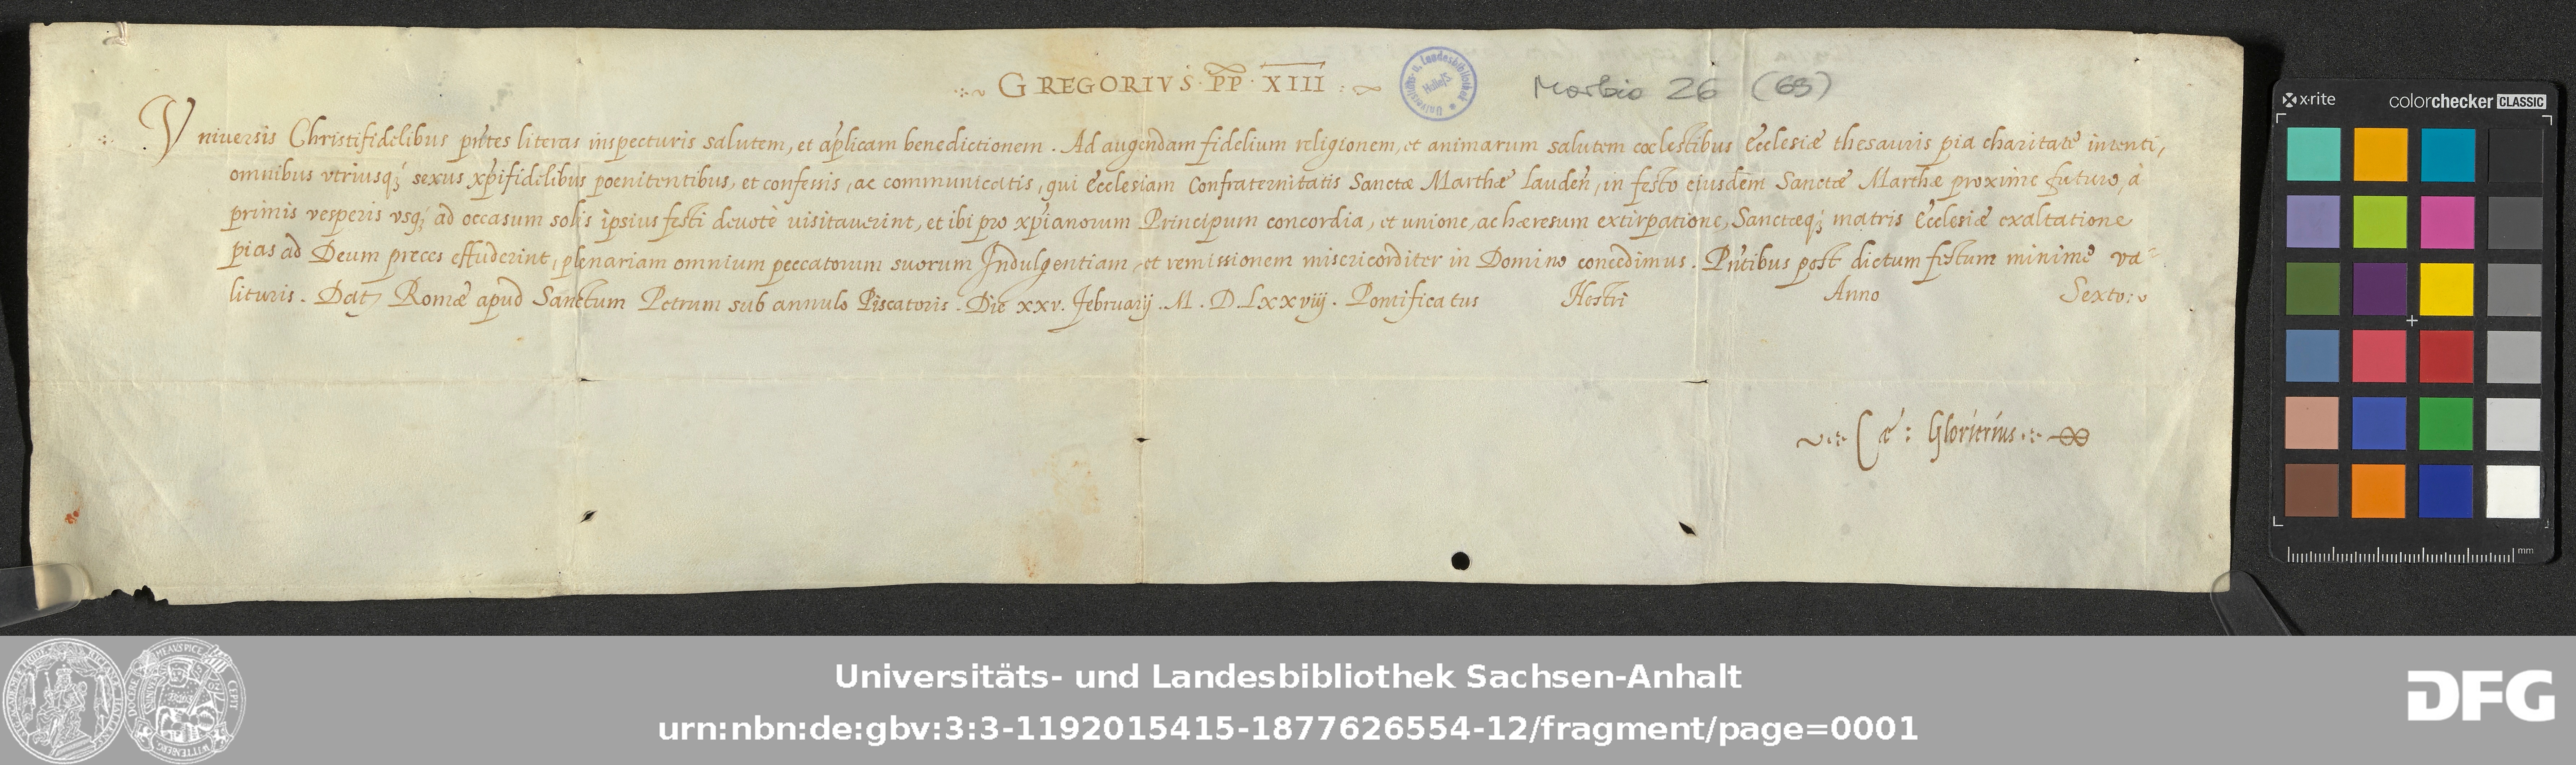 GREGORIVS · PP · XIII
Morbio 26 (65)
Vniuersis Christifidelibus pn̄tes literas inspecturis salutem, et ap̄licam benedictionem. Ad augendam fidelium religionem, et animarum salutem cœlestibus Ecclesiæ thesauris pia charitate intenti,
omnibus vtriusq; sexus xp̄ifidelibus poenitentibus, et confessis, ac communicatis, qui Ecclesiam Confraternitatis Sanctæ Marthæ Lauden̄, in festo eiusdem Sanctæ Marthæ proxime futuro, à
primis vesperis vsq; ad occasum solis ipsius festi deuotè uisitauerint, et ibi pro xp̄ianorum Principum concordia, et unione, ac hæresum extirpatione, Sanctæq; matris Ecclesiæ exaltatione
pias ad Deum preces effuderint, plenariam omnium peccatorum suorum Indulgentiam, et remissionem misericorditer in Domino concedimus. Pn̄tibus post dictum festum minimè va-
lituris. Dat; Romæ apud Sanctum Petrum sub annulo Piscatoris. Die xxv. Februarij. M. D. Lxxviij. Pontificatus Nostri Anno Sexto:
Cæ: Glorierius
Universitäts- u. Landesbibliothek Halle/S.
Universitäts- und Landesbibliothek Sachsen-Anhalt
urn:nbn:de:gbv:3:3-1192015415-1877626554-12/fragment/page=0001
DFG
x·rite
colorchecker CLASSIC
mm